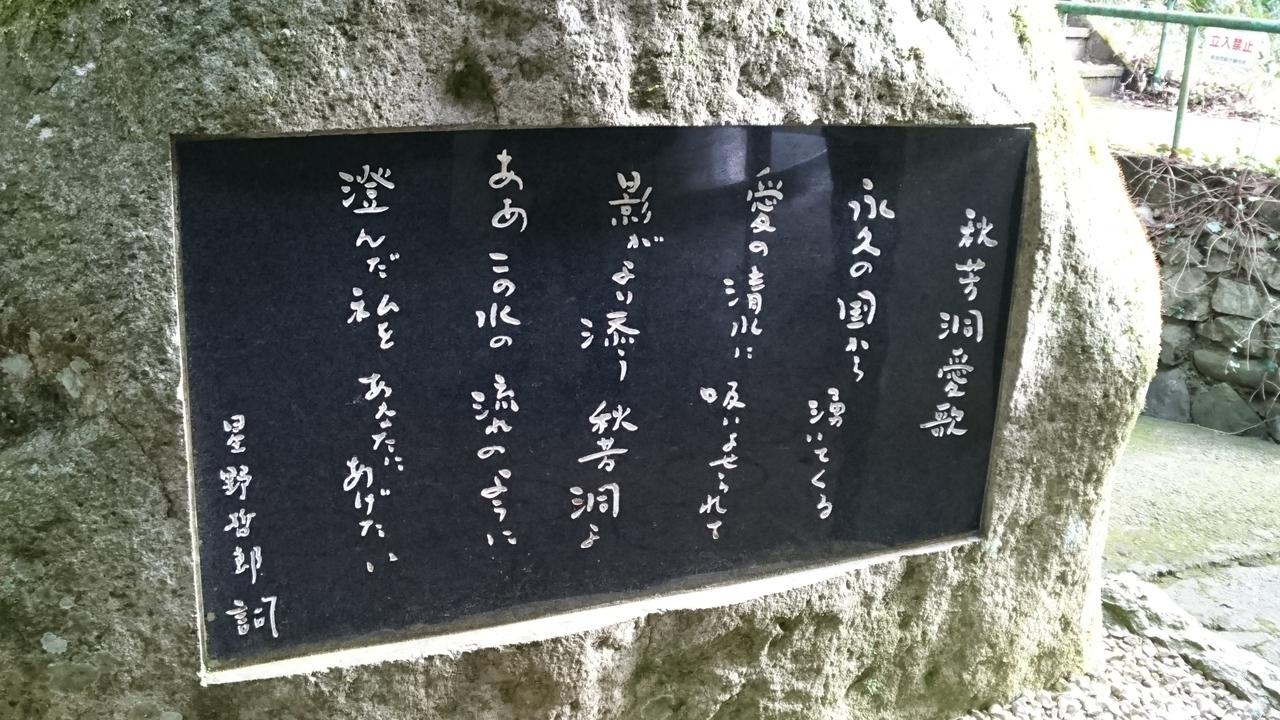 秋芳洞愛歌
永久の国から 湧いてくる
愛の清水に 吸いよせられて
影がより添う 秋芳洞よ
ああ この水の 流れのように
澄んだ私を あなたに あげたい
星野哲郎 詞
立入禁止